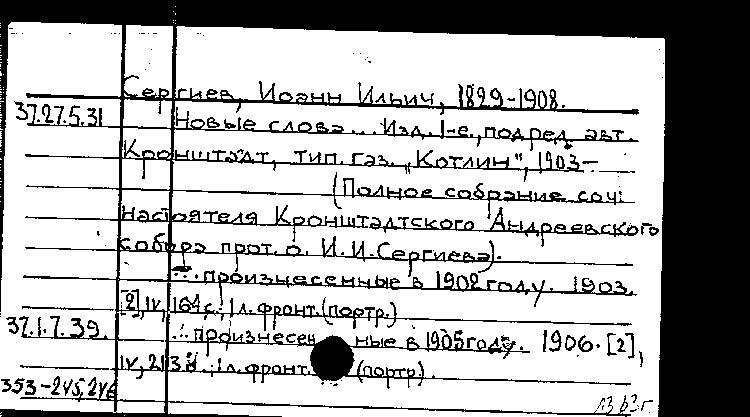 Сергиев, Иоанн Ильич, 1829-1908.
37.27.5.31 Новые слова... Изд. 1-е, под ред. авт.
Кронштадт, тип. газ. „Котлин", 1903-
(Полное собрание соч.
настоятеля Кронштадтского Андреевского
собора прот. о. И.И.Сергиева).
...произнесенные в 1902 году. 1903.
[2], IV, 164 с.; 1 л. фронт. (портр.)
37.1.7.39. ...произнесенные в 1905 году. 1906. [2],
IV, 213 с.; 1 л. фронт. (портр).
353-245,246